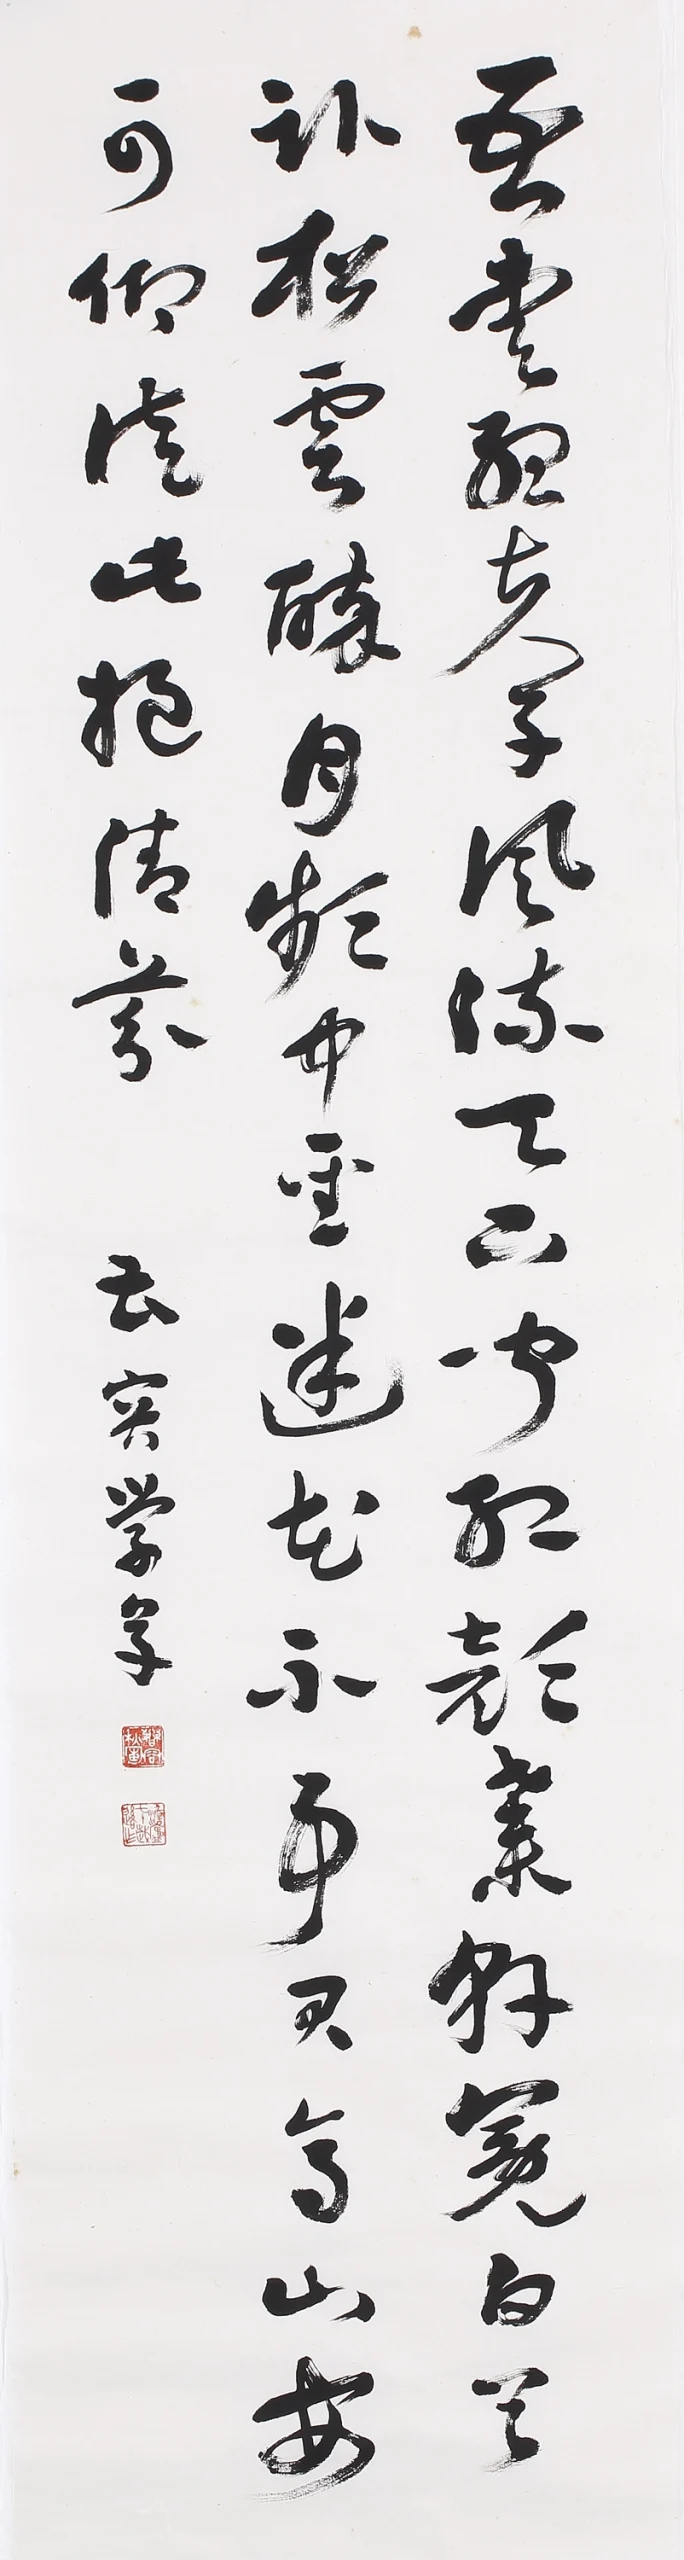 吾愛孟夫子風流天下聞紅顏棄軒冕白首
臥松雲醉月頻中聖迷花不事君高山安
可仰從此挹清芬